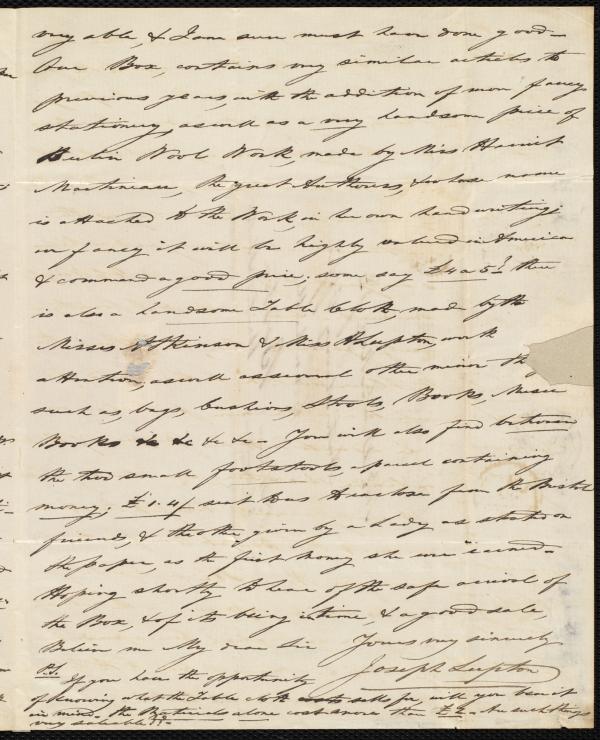 very able, & I am sure must have done good—
Our Box, contains very similar articles to
previous years, with the addition of more fancy
stationery, as well as a very handsome piece of
Berlin Wool Work, made by Miss Harriet
Martineau, the great Authoress, & whose name
is attached to the Work, in her own handwriting;
we fancy it will be highly valued in America
& command a good price, some say £4 a 5. there
is also a handsome Table Cloth, made by the
Misses Atkinson & Miss Lupton, worth
attention, as well as several other minor th
such as, bags, Cushions, Stools, Books, Music
Books &c &c &c— You will also find between
the two small footstools, a parcel containing
money; £1.4/ sent to us to enclose from the Bristol
friends, & the other given by a Lady as stated on
the paper, as the first money she ever "earned—
Hoping shortly to hear of the safe arrival of
the Box, & of its being in time, & a good sale,
Believe me My dear Sir Yours very sincerely
Joseph Lupton
P.S. If you have the opportunity
of knowing what the Table cloth sells for will you bear it
in mind— the Materials alone cost more than £2— Are such things
very saleable??